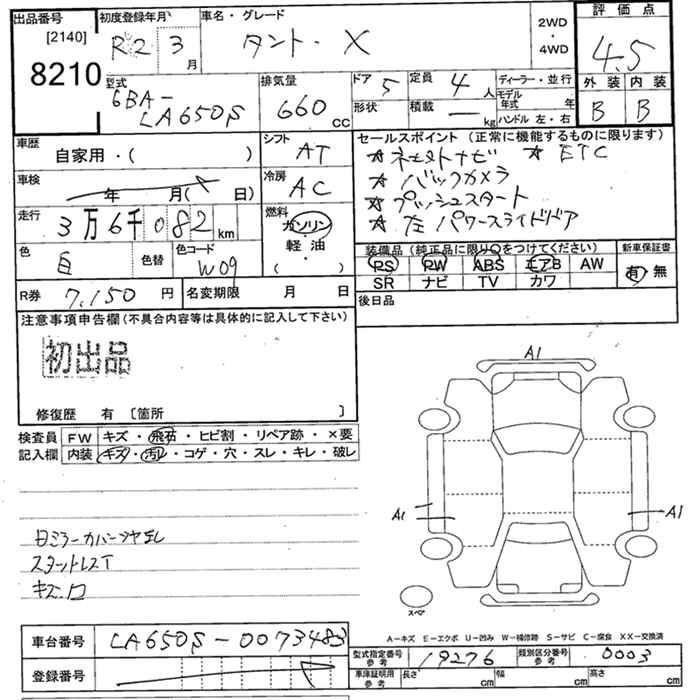 出品番号 [2140] 8210
初度登録年月 R2 3 月
車名・グレード タント・X
2WD・4WD
評価点 4.5
外装 B 内装 B
型式 6BA-LA650S
排気量 660 CC
ドア 5
形状
定員 4 人
積載 — kg
ディーラー・並行
モデル年式 年
ハンドル 左・右
車歴 自家用・( )
シフト AT
車検 年 月( 日)
冷房 AC
走行 3万6千082 km
燃料 ガソリン・軽油・( )
色 白 色替
色コード W09
R券 7,150 円
名変期限 月 日
セールスポイント(正常に機能するものに限ります)
★ ★ ETC
★ バックカメラ
★ プッシュスタート
★ 左パワースライドドア
装備品(純正品に限り○をつけてください)
PS PW ABS エアB AW
SR ナビ TV カワ
新車保証書 有 無
後日品
注意事項申告欄(不具合内容等は具体的に記入して下さい)
初出品
修復歴 有 [箇所 ]
検査員記入欄
FW キズ・飛石・ヒビ割・リペア跡・×要
内装 キズ・汚レ・コゲ・穴・スレ・キレ・破レ
キズ
A1
A1
A1
スペア
A-キズ E-エクボ U-凹み W-補修跡 S-サビ C-腐食 XX-交換済
車台番号 LA650S-0073483
登録番号
型式指定番号 参考 19276
類別区分番号 参考 0003
車庫証明用 参考 長さ cm 幅 cm 高さ cm